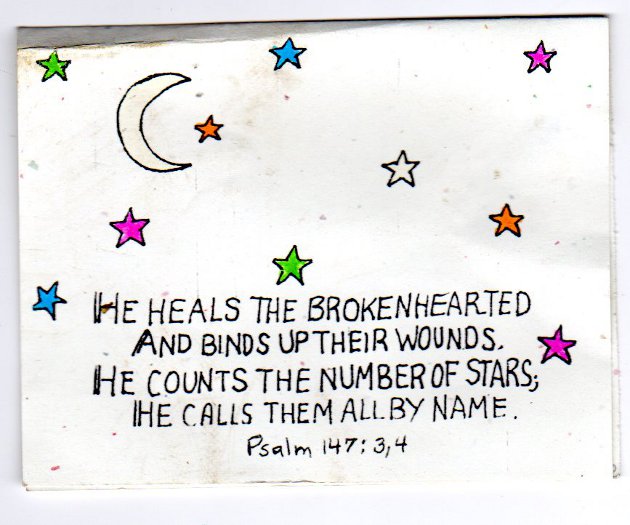 HE HEALS THE BROKENHEARTED
AND BINDS UP THEIR WOUNDS.
HE COUNTS THE NUMBER OF STARS;
HE CALLS THEM ALL BY NAME.
Psalm 147:3,4